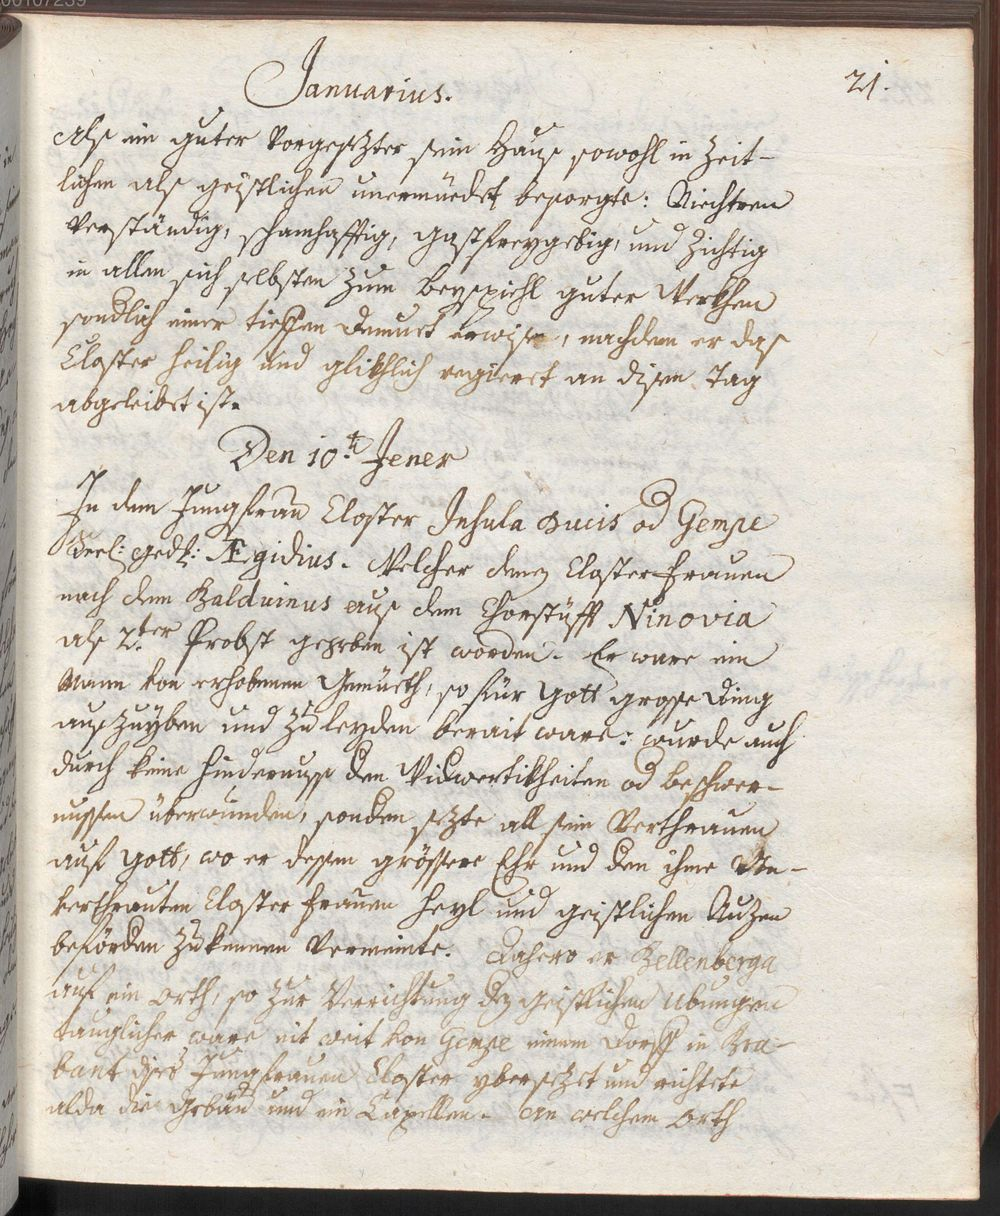 00107239
Januarius.
21.
Als ein guter Vorgesetzter sein Hauß sowohl in Zeit-
lichen als geistlichen unermüedet besorgte: Niechtren
Verständig, schamhafftig, gastfreygebig, und Zichtig
in allen sich selbsten Zum beyspiehl guter Werkhen
sondlich einer tieffen Demuet erwisen, nachdem er das
Closter heilig und glikhlich regieret an disem Tag
abgeleibet ist.
Den 10.t Jener
In dem Jungfrau Closter Insula Ducis od Gempe
Seel: gedh: Ægidius. Welcher denen Closter frauen
nach dem Balduinus aus dem Chorstüfft Ninovia
als 2.ter Probst gegeben ist worden. Er ware ein
Mann von erhobenen Gemüeth, so für Gott grosse Ding
auszuyben und Zu leyden berait ware: wurde auch
durch keine hindernuss den Widwertikheiten od beschwer-
nussen überwunden, sonden setzte all sein Verthrauen
auf Gott, wo er dessen grössere Ehr und den ihme An-
verthrauten Closter frauen heyl und geistlichen Nuzen
beförden Zu kennen Vermeinte. Dahero er Bellenberga
auf ein Orth, so Zur Verrichtung der geistlichen Ubungen
tauglicher ware nit weit von Gempe einem Dorff in Bra-
bant dises Jungfrauen Closter ybersetzet und richtete
alda die Gebäu und ein Capellen. An welchem Orth